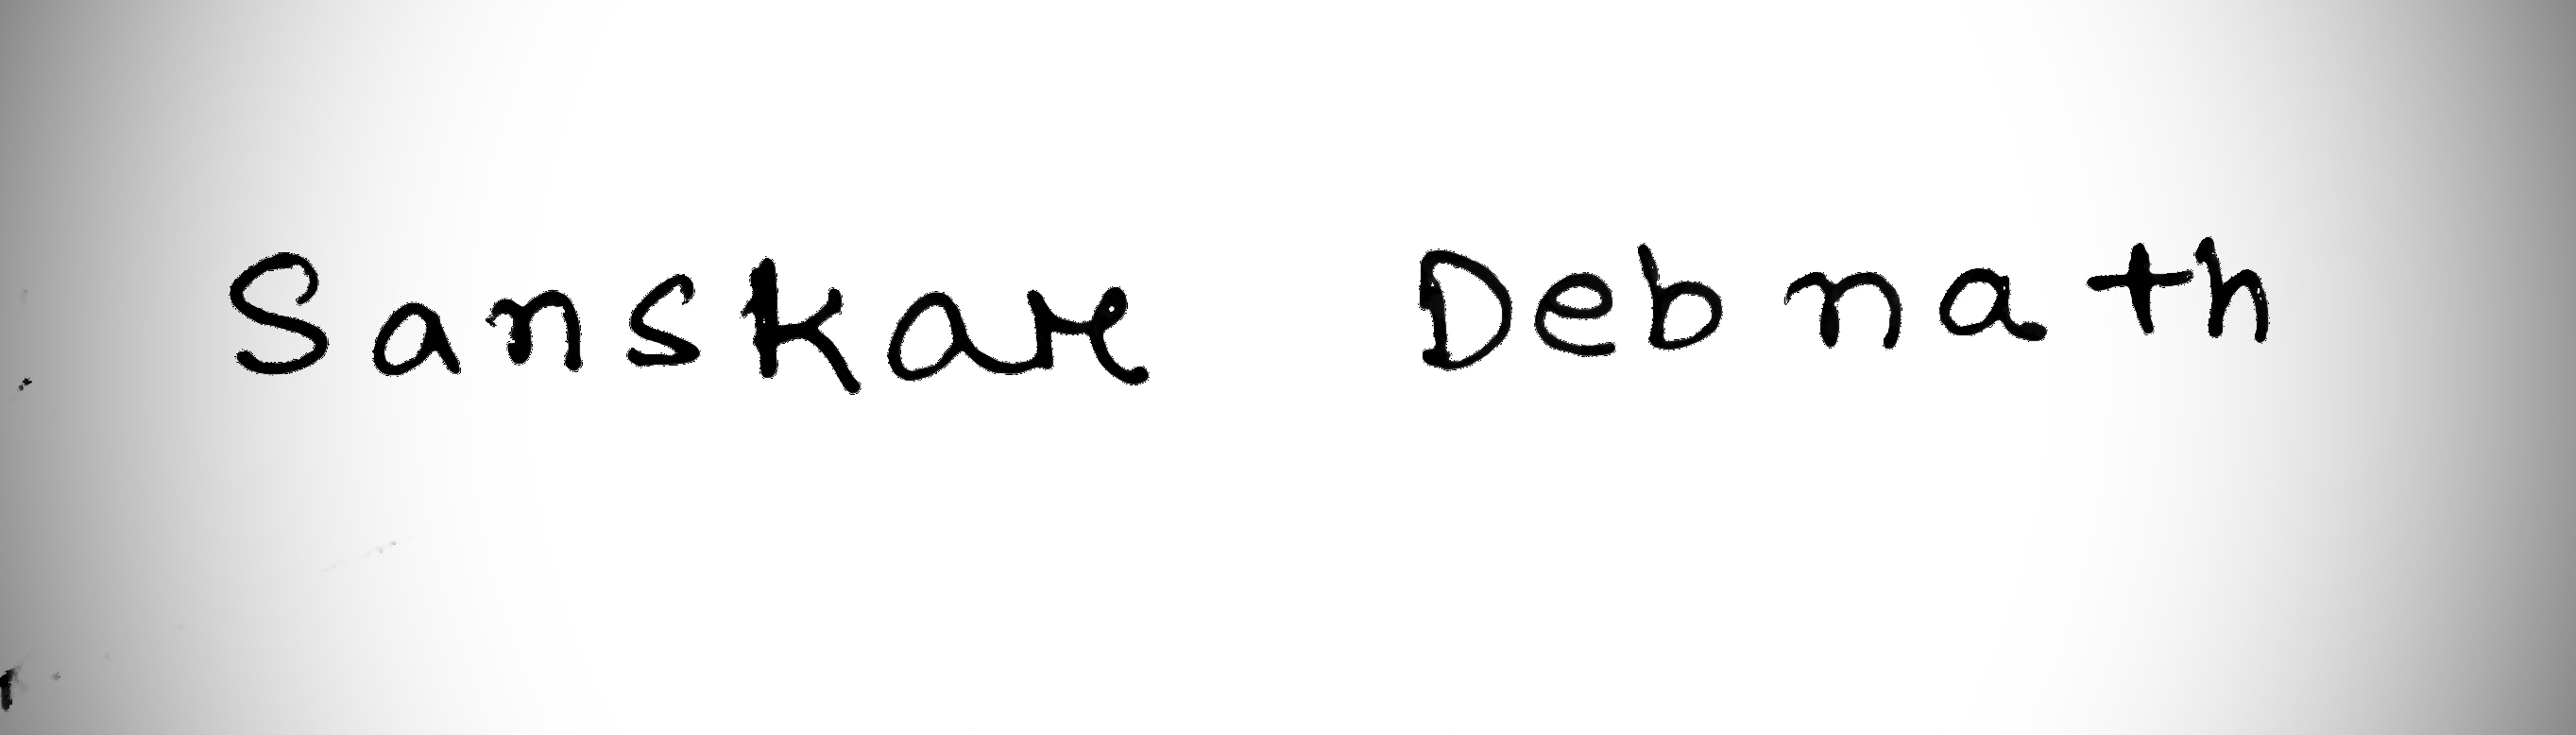 Sanskar Debnath